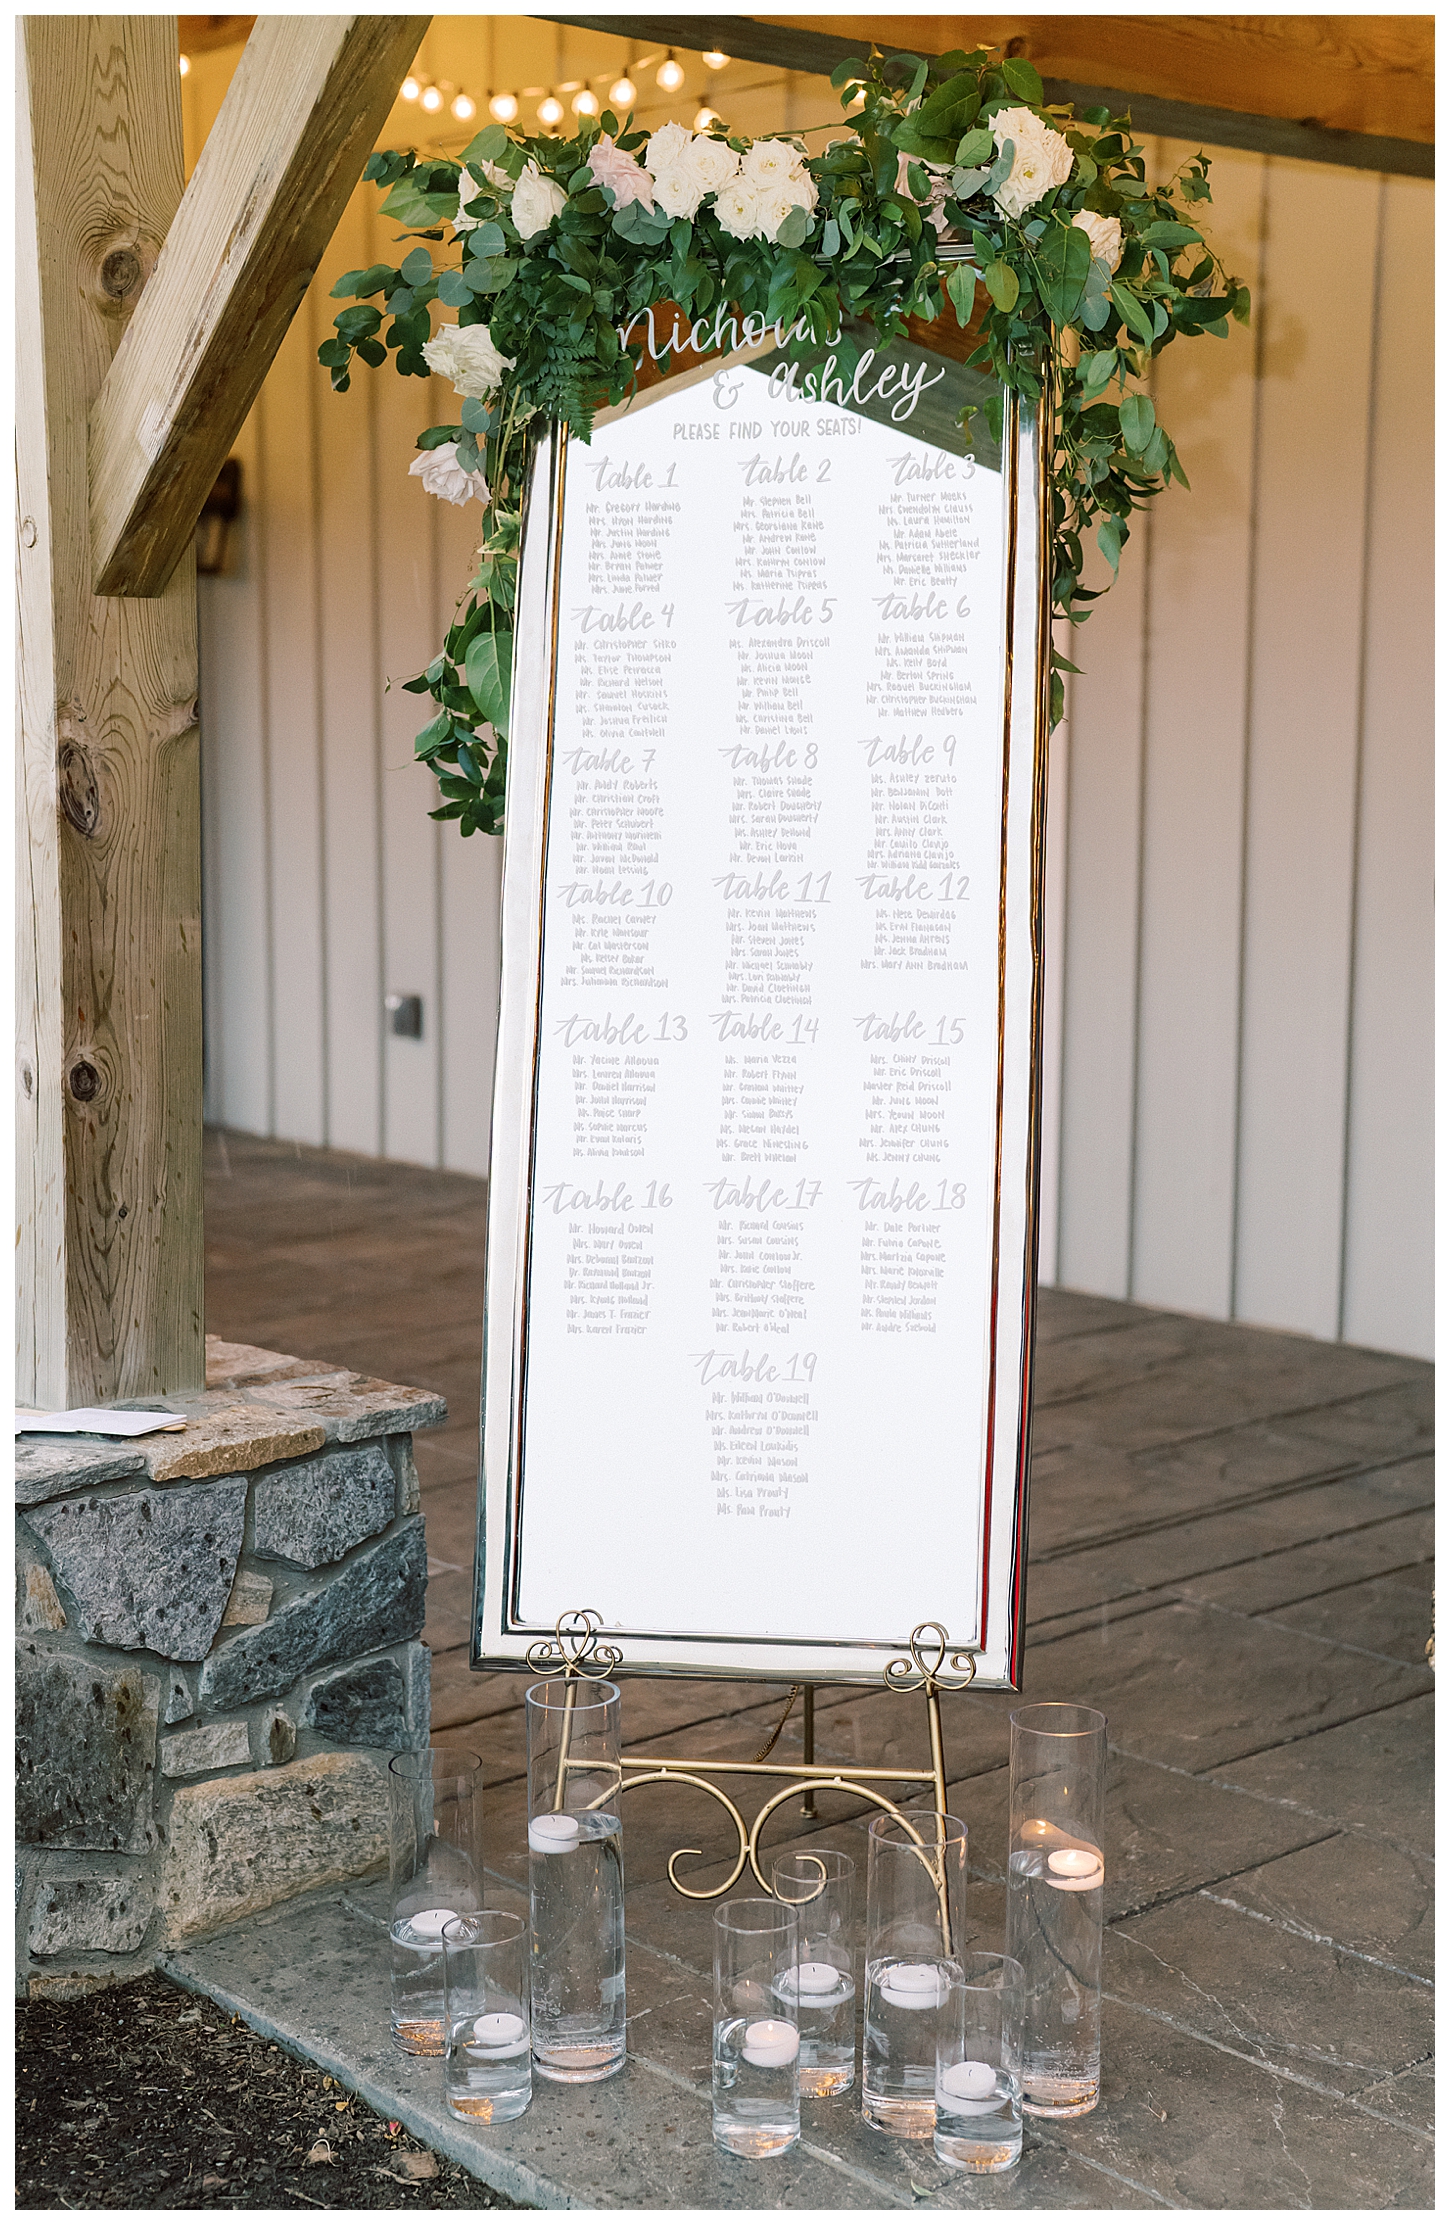 Nicholas
& Ashley
PLEASE FIND YOUR SEATS!
table 1
Mr. Gregory Harding
Mrs. Harding
Mr. Justin Harding
Ms. June Moon
Mrs. Anne Stone
Mr. Bryan Palmer
Mrs. Linda Palmer
Mrs. June
table 2
Mr. Stephen Bell
Mrs. Patricia Bell
Mrs. Georgiana Kane
Mr. Andrew Kane
Mr. John Conlow
Mrs. Kathryn Conlow
Ms. Maria Tsipras
Ms. Katherine Tsipras
table 3
Mr. Turner Meeks
Mrs. Gwendolyn Clauss
Ms. Laura Hamilton
Mr. Adam Abele
Ms. Patricia Sutherland
Mrs. Margaret Sheckler
Ms. Danielle Williams
Mr. Eric Beatty
table 4
Mr. Christopher Sitko
Ms. Taylor Thompson
Ms. Elise Petrocca
Mr. Richard Nelson
Mr. Samuel Hoskins
Ms. Shannon Cusack
Mr. Joshua Freilich
Ms. Olivia Cantwell
table 5
Ms. Alexandra Driscoll
Mr. Joshua Moon
Ms. Alicia Moon
Mr. Kevin
Mr. Philip Bell
Mr. William Bell
Ms. Christina Bell
Mr. Daniel Lyons
table 6
Mr. William Shipman
Mrs. Amanda Shipman
Ms. Kelly Boyd
Mr. Berton Spring
Mrs. Raquel Buckingham
Mr. Christopher Buckingham
Mr. Matthew Hedberg
table 7
Mr. Addy Roberts
Mr. Christian Croft
Mr. Christopher Moore
Mr. Peter Schubert
Mr. Anthony Marinelli
Mr. William
Mr. Jason McDonald
Mr. Noah Lessing
table 8
Mr. Thomas Shade
Mrs. Claire Shade
Mr. Robert Dougherty
Mrs. Sarah Dougherty
Ms. Ashley DeHond
Mr. Eric Hova
Mr. Devon Larkin
table 9
Ms. Ashley Zeruto
Mr. Benjamin Bott
Mr. Nolan DiConti
Mr. Austin Clark
Mrs. Amy Clark
Mr. Camilo Clavijo
Mrs. Adriana Clavijo
Mr. William Kidd Gonzales
table 10
Ms. Rachel Carney
Mr. Kyle Mansour
Mr. Cal Masterson
Ms. Kelsey Baker
Mr. Samuel Richardson
Mrs. Julianna Richardson
table 11
Mr. Kevin Matthews
Mrs. Joan Matthews
Mr. Steven Jones
Mrs. Sarah Jones
Mr. Michael Schnably
Mrs. Lori Schnably
Mr. David Cloetingh
Mrs. Patricia Cloetingh
table 12
Ms. Nese Demirdag
Ms. Erin Flanagan
Ms. Jenna Ahrens
Mr. Jack Bradham
Mrs. Mary Ann Bradham
table 13
Mr. Yacine Allaoua
Mrs. Lauren Allaoua
Mr. Daniel Harrison
Mr. John Harrison
Ms. Paige Sharp
Ms. Sophie Marcus
Mr. Evan Kolaris
Ms. Alivia
table 14
Ms. Maria Vezza
Mr. Robert Flynn
Mr. Whitney
Mrs. Whitney
Mr. Simon
Ms. Megan Haydel
Ms. Grace Ninesling
Mr. Brett Whelan
table 15
Mrs. Chiny Driscoll
Mr. Eric Driscoll
Master Reid Driscoll
Mr. Jung Moon
Mrs. Yeoun Moon
Mr. Alex Chung
Mrs. Jennifer Chung
Ms. Jenny Chung
table 16
Mr. Howard Owen
Mrs. Mary Owen
Mrs. Deborah
Dr. Raymond
Mr. Richard Holland Jr.
Mrs. Kyong Holland
Mr. James T. Frazier
Mrs. Karen Frazier
table 17
Mr. Richard Cousins
Mrs. Susan Cousins
Mr. John Conlow Jr.
Mrs. Katie Conlow
Mr. Christopher Staffere
Mrs. Brittany Staffere
Mrs. Jean Marie O'Neal
Mr. Robert O'Neal
table 18
Mr. Dale Portner
Mr. Fulvio Capone
Mrs. Marlzia Capone
Mrs. Marie
Mr. Randy Dewitt
Mr. Stephen Jordon
Ms. Paula Williams
Mr. Andre
table 19
Mr. William O'Donnell
Mrs. Kathryn O'Donnell
Mr. Andrew O'Donnell
Ms. Eileen Loukidis
Mr. Kevin Mason
Mrs. Catriona Mason
Ms. Lisa Prouty
Ms. Prouty